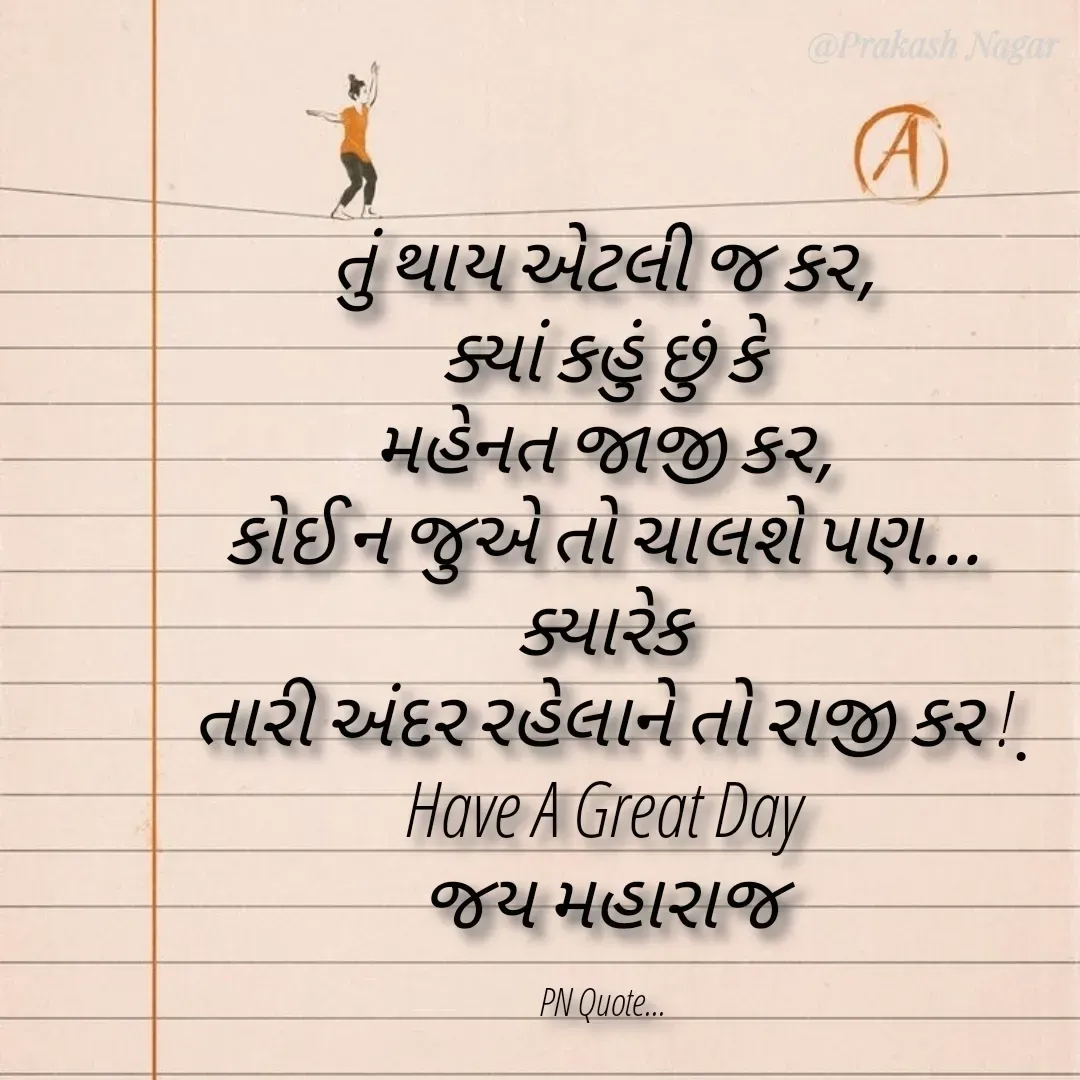 @Prakash Nagar
A
તું થાય એટલી જ કર,
ક્યાં કહું છું કે
મહેનત જાજી કર,
કોઈ ન જુએ તો ચાલશે પણ...
ક્યારેક
તારી અંદર રહેલાને તો રાજી કર!.
Have A Great Day
જય મહારાજ
PN Quote...